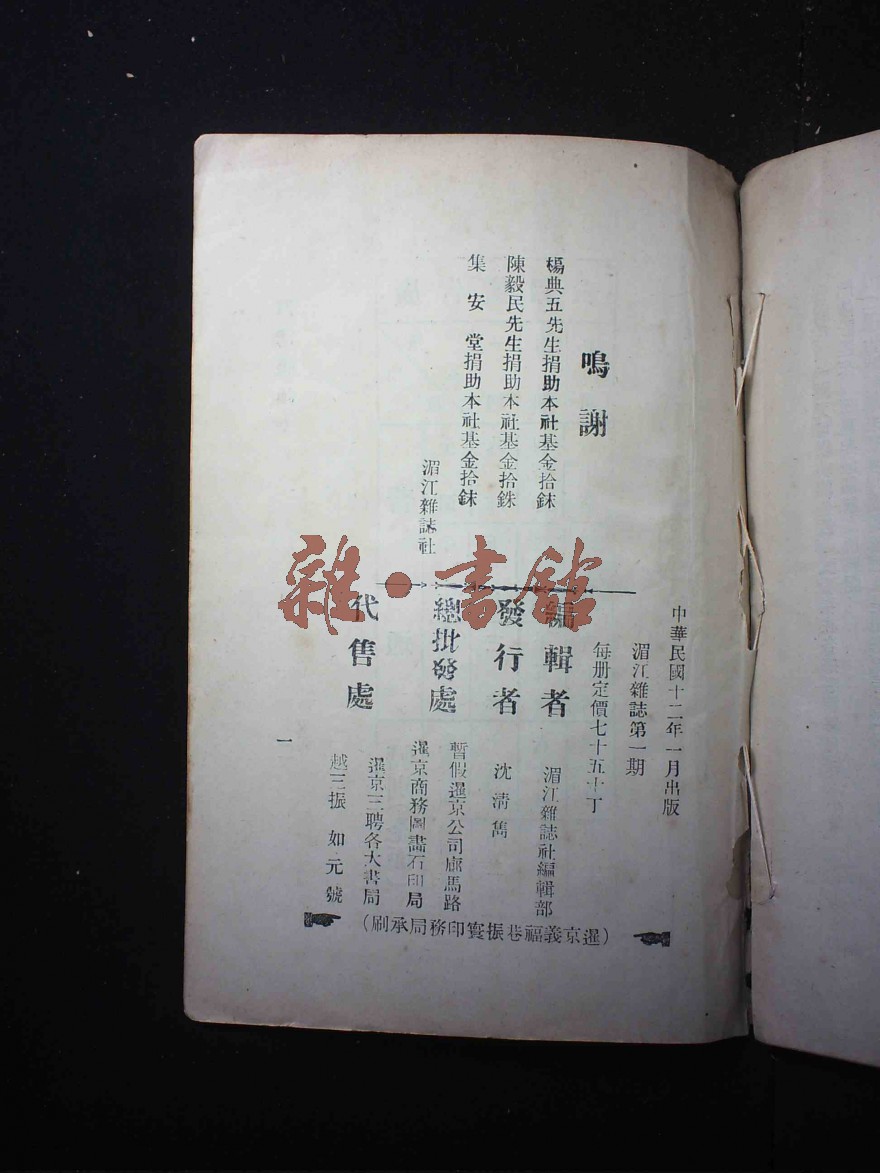 鳴謝
楊典五先生捐助本社基金拾銖
陳毅民先生捐助本社基金拾銖
集安堂捐助本社基金拾銖
湄江雜誌社
中華民國十二年一月出版
湄江雜誌第一期
每册定價七十五士丁
編輯者
湄江雜誌社編輯部
發行者
沈清雋
總批發處
暫假暹京公司廊馬路
暹京商務圖畫石印局
代售處
暹京三聘各大書局
越三振如元號
(暹京義福巷振寰印務局承刷)
一
雜·書館